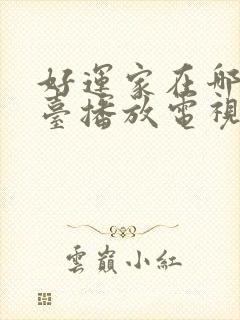 好運家在哪
臺播放電視
雲巔小紅